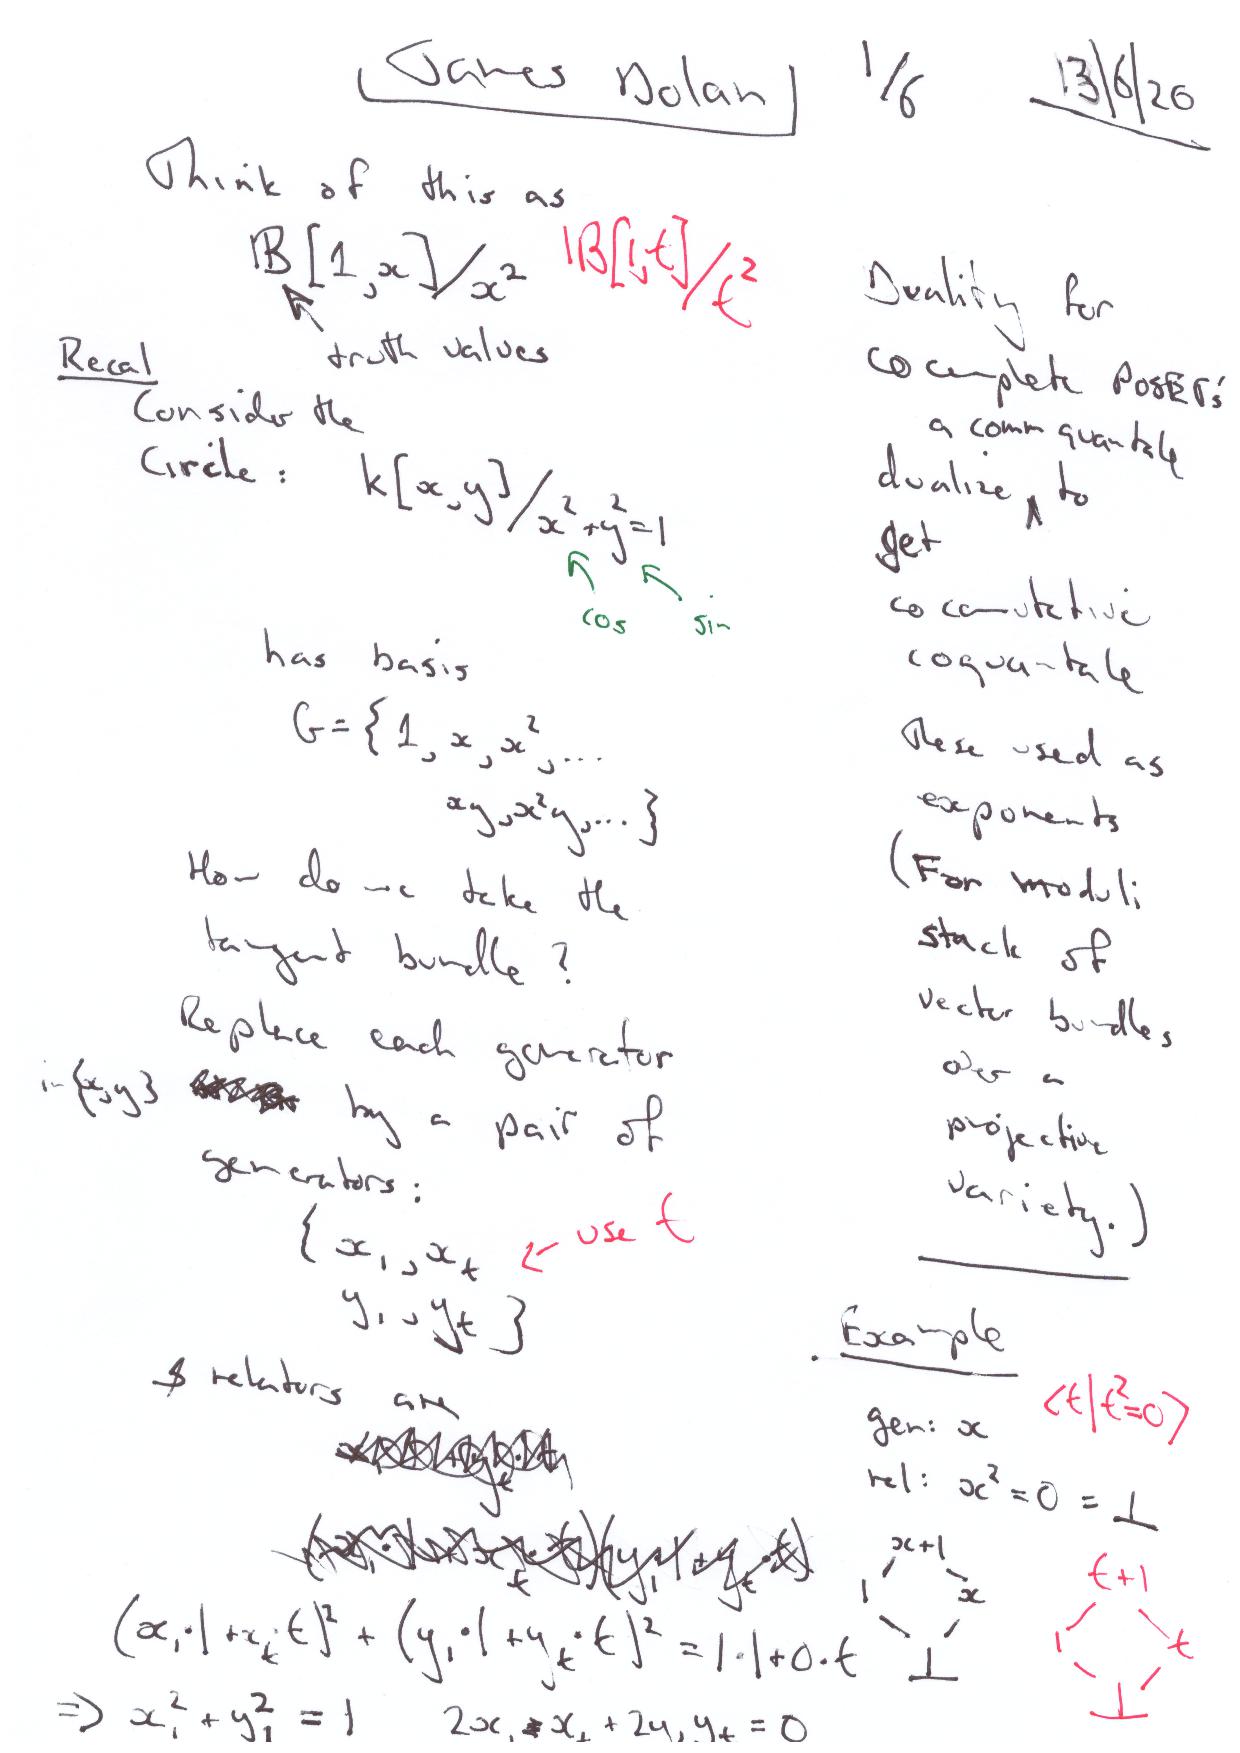 James Dolan 1/6 13/6/20
Think of this as
𝔹[1,x]/x² 𝔹[1,t]/t²
truth values
Recal
Consider the
Circle: k[x,y]/x²+y²=1
cos sin
has basis
G={1,x,x²,...
xy,x²y,...}
How do we take the
tangent bundle?
Replace each generator
in {x,y} by a pair of
generators:
{x₁,xₜ ← use t
y₁,yₜ}
& relators are
(x₁·1+xₜ·t)²+(y₁·1+yₜ·t)²=1·1+0·t
⇒ x₁²+y₁²=1 2x₁xₜ+2y₁yₜ=0
Duality for
cocomplete POSET's
a comm quantale
dualize ∧ to
get
cocomutative
coquantale
These used as
exponents
(For moduli
stack of
vector bundles
over a
projective
variety.)
Example
<t|t²=0>
gen: x
rel: x²=0=⊥
x+1
1 x
⊥
t+1
1 t
⊥